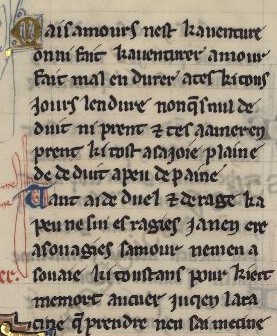 Mais amours nest kauenture
on ni fait kauenturer amour
fait mal endurer ates ki tous
iours lendure non q̃s nul de
duit ni prent ⁊ tes aumeren
prent ki tost a sa ioie plaine
de deduit apeu de paine
Tant ai de duel ⁊ de rage ka
peu ne sui esragies ia nen ere
asouagies samour nemen a
souaie ki tous tans pour kiert
me mort ancuer iugien lara
cine q̃ prendre nen sai mecine